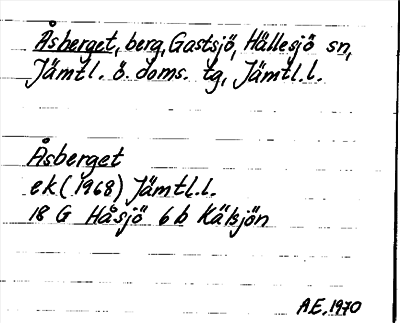 Åsberget, berg, Gastsjö, Hällesjö sn,
Jämtl. ö. doms. tg, Jämtl.l.
Åsberget
ek (1968) Jämtl.l.
18 G Håsjö 6 b Kälsjön
A.E. 1970